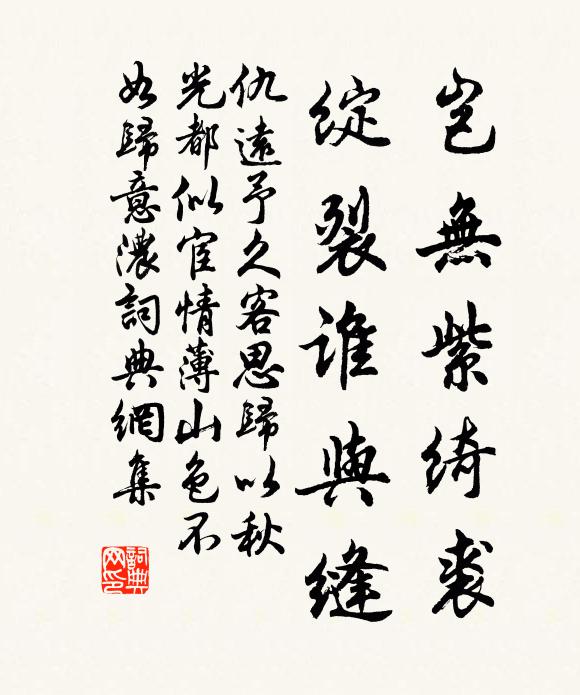 岂無紫綺裘
綻裂誰與縫
仇遠予久客思歸以秋
光都似宦情薄山色不
如歸意濃詞典網集
詞典网印